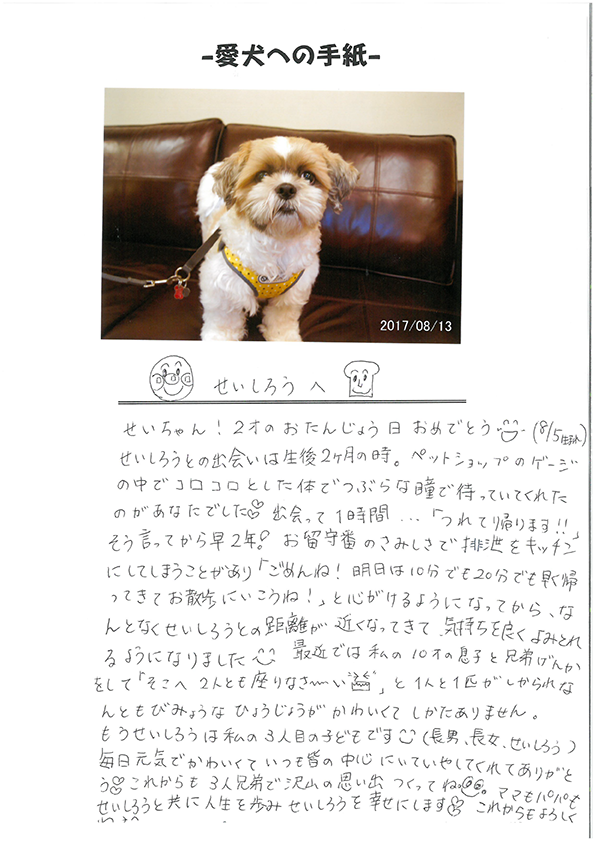 -愛犬への手紙-
2017/08/13
せいしろう へ
せいちゃん！2才のおたんじょう日おめでとう (8/5生まれ)
せいしろうとの出会いは生後2ヶ月の時。ペットショップのゲージ
の中でコロコロとした体でつぶらな瞳で待っていてくれた
のがあなたでした 出会って1時間…「つれて帰ります!!」
そう言ってから早2年! お留守番のさみしさで排泄をキッチン
にしてしまうことがあり「ごめんね！明日は10分でも20分でも早く帰
ってきてお散歩にいこうね！」と心がけるようになってから、な
んとなくせいしろうとの距離が近くなってきて気持ちを良くよみとれ
るようになりました 最近では私の10才の息子と兄弟げんか
をして「そこへ2人とも座りなさ〜い」と1人と1匹がしかられな
んともびみょうなひょうじょうがかわいくてしかたありません。
もうせいしろうは私の3人目の子どもです (長男、長女、せいしろう)
毎日元気でかわいくていつも皆の中心にいていやしてくれてありがと
う これからも3人兄弟で沢山の思い出つくってね。ママもパパも
せいしろうと共に人生を歩みせいしろうを幸せにします これからもよろしく